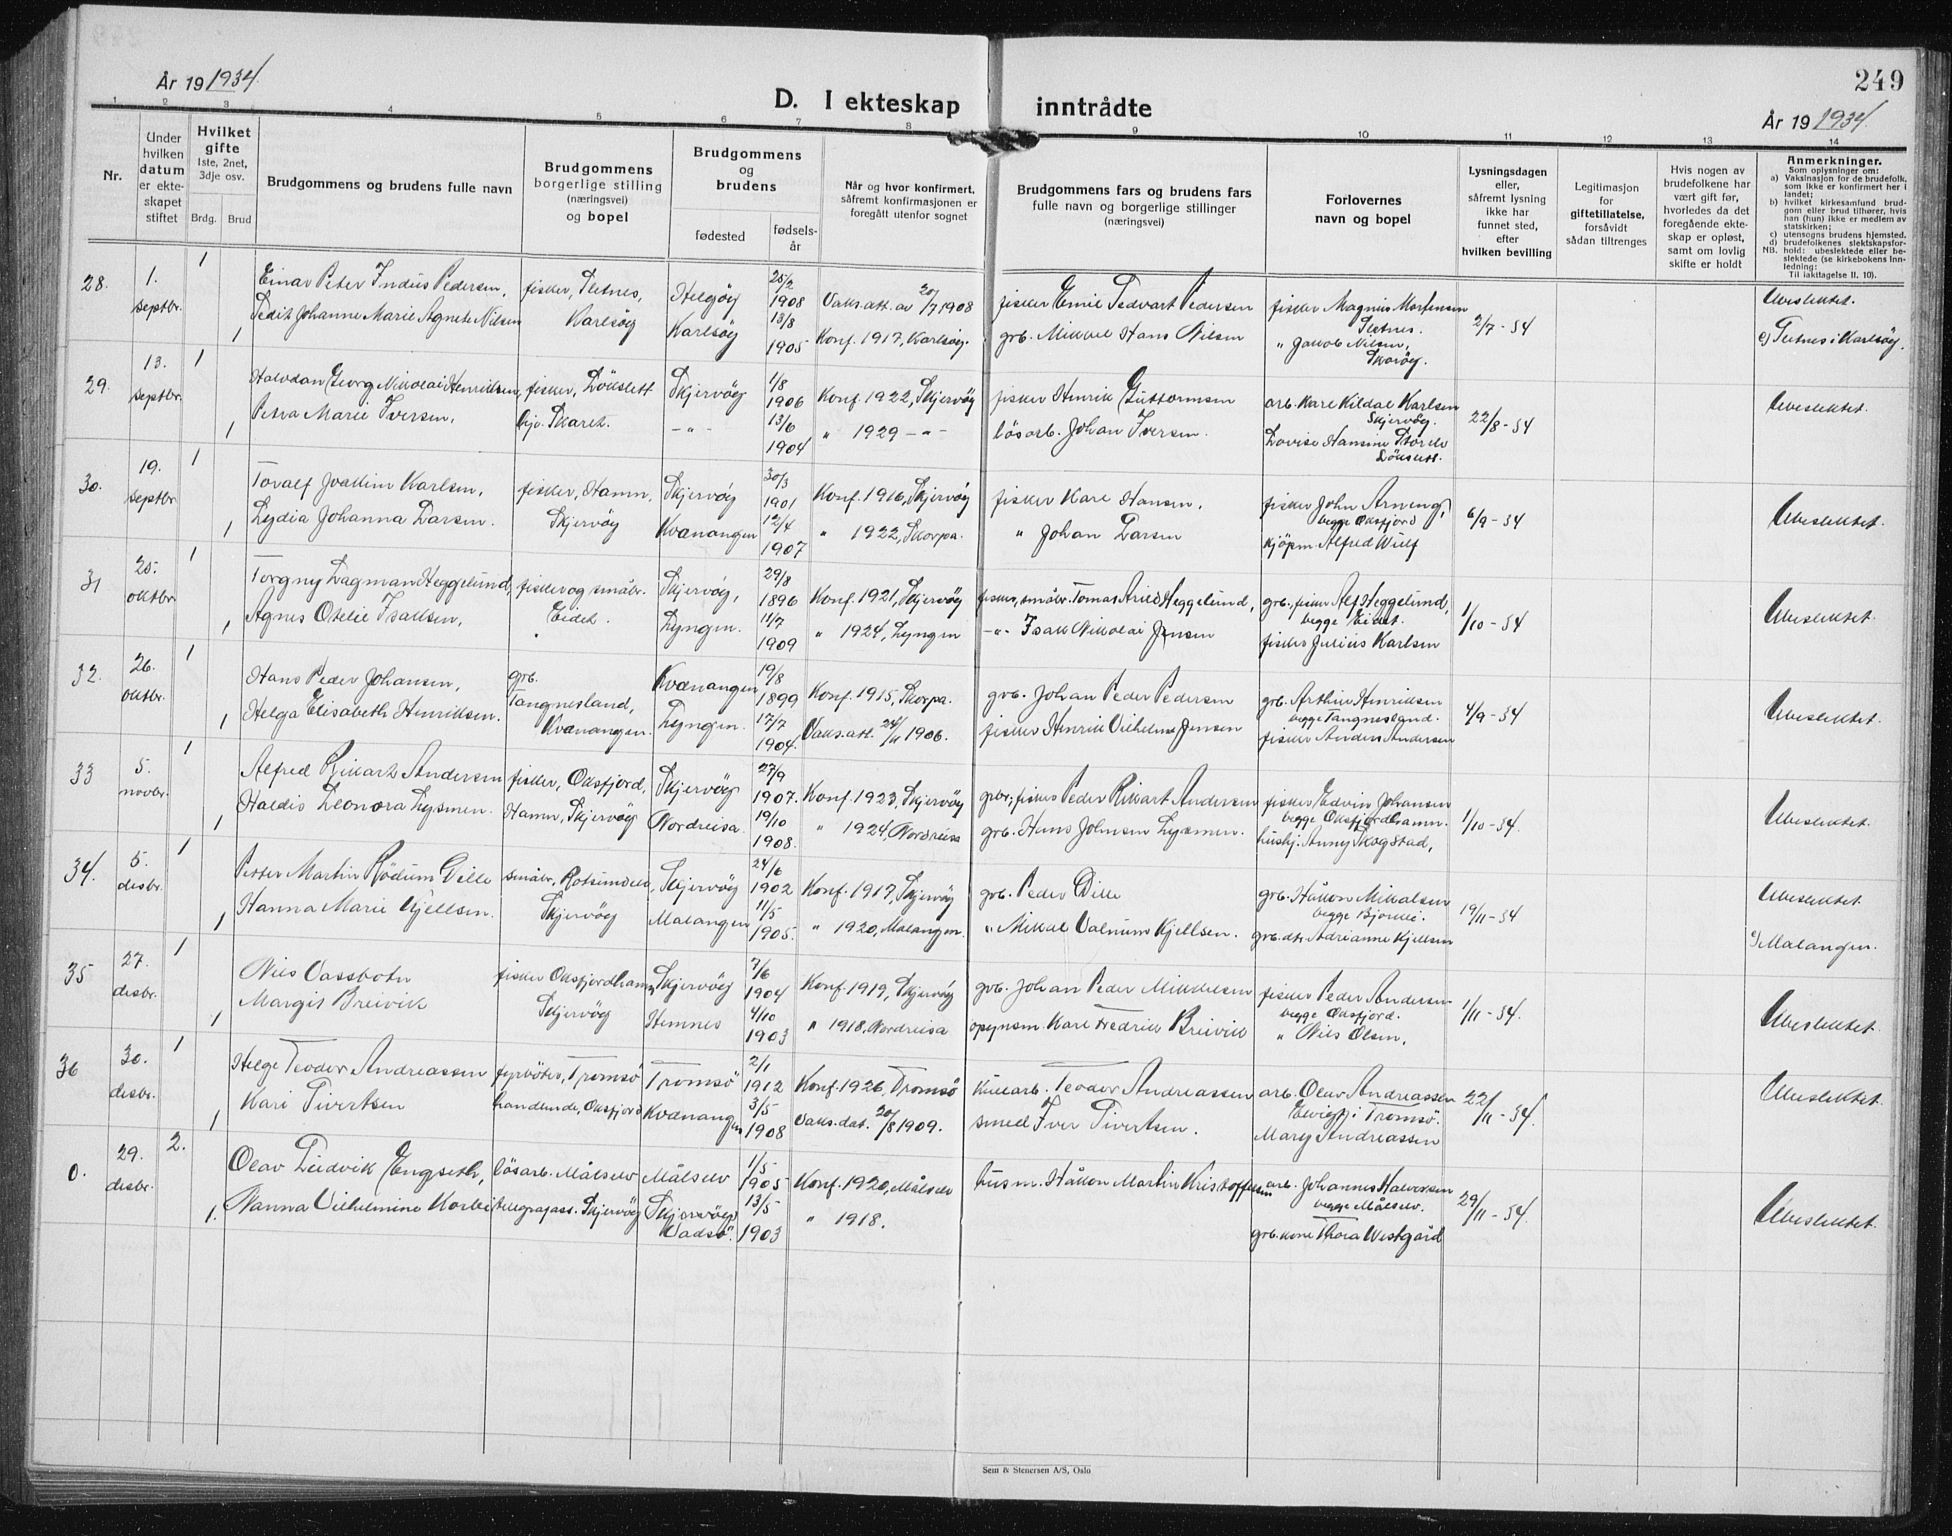 249
År 19 1934.
D. I ekteskap inntrådte
År 19 1934.
1 2 3 4 5 6 7 8 9 10 11 12 13 14
Nr.
Under
hvilken
datum
er ekte-
skapet
stiftet
Hvilket
gifte
1ste, 2net,
3dje osv.
Brdg. Brud
Brudgommens og brudens fulle navn
Brudgommens
borgerlige stilling
(næringsvei)
og bopel
Brudgommens
og
brudens
fødested
fødsels-
år
Når og hvor konfirmert,
såfremt konfirmasjonen er
foregått utenfor sognet
Brudgommens fars og brudens fars
fulle navn og borgerlige stillinger
(næringsvei)
Forlovernes
navn og bopel
Lysningsdagen
eller,
såfremt lysning
ikke har
funnet sted,
efter
hvilken bevilling
Legitimasjon
for
giftetillatelse,
forsåvidt
sådan tiltrenges
Hvis nogen av
brudefolkene har
vært gift før,
hvorledes da det
foregående ekte-
skap er opløst,
samt om lovlig
skifte er holdt
Anmerkninger.
Som oplysninger om:
a) Vaksinasjon for de brudefolk,
som ikke er konfirmert her i
landet;
b) hvilket kirkesamfund brud-
gom eller brud tilhører, hvis
han (hun) ikke er medlem av
statskirken;
c) utensogns brudens hjemsted.
d) brudefolkenes slektskapsfor-
NB. hold: ubeslektede eller be-
slektede (se kirkebokens Inn-
ledning:
Til iakttagelse II. 10).
28. 1. 1 Einar Peter Pedersen, fisker, Helgöy 25/2 1908 Vaks.att. av 20/7 1908 fisker Pedersen fisker Magnus Mortensen 2/7-34 Ubeslektet.
septbr. 1 Johanne Marie Agnete Nilsen Karlsöy Karlsöy 13/8 1905 Konf. 1917, Karlsöy. grb. Mikkel Hans Nilsen " Jakob Nilsen, c) i Karlsöy.
29. 13. 1 Halvdan Georg Nikolai Henriksen, fisker, Skjervöy 1/8 1906 Konf. 1922, Skjervöy fisker Henrik Guttormsen arb. Kåre Kildal Karlsen 22/8-34 Ubeslektet.
septbr. 1 Petra Marie Iversen, -"- 13/6 1904 " 1929 -"- lösarb. Johan Iversen. Skjervöy. Lovise Hansine
30. 19. 1 Toralf Joakim Karlsen, fisker, Hamn, Skjervöy 30/3 1901 Konf. 1916, Skjervöy fisker Kare Hansen, fisker John 6/9-34 Ubeslektet.
septbr. 1 Lydia Johanna Larsen. Skjervöy Kvænangen 12/4 1907 " 1922, Skorpa. " Johan Larsen begge Oksfjord kjöpm. Alfred Wulf
31 25. 1 Torgny Dagman Heggelund, fisker og småbr. Skjervöy, 29/8 1896 Konf. 1921, Skjervöy fisker, småbr. Tomas Heggelund, grb., fisker Alf Heggelund, 1/10-34 Ubeslektet.
oktbr. 1 Agnes Otelie Isaksen, Eidet. Lyngen. 11/7 1909 " 1924, Lyngen -"- Isak Nikolai Jensen begge Eidet. fisker Julius Karlsen
32. 26. 1 Hans Peder Johansen, grb. Kvænangen 19/8 1899 Konf. 1915, Skorpa. grb. Johan Peder Pedersen grb. Arthur Henriksen 4/9-34 Ubeslektet.
oktbr. 1 Helga Elisabeth Henriksen. Tangnesland, Kvænangen. Lyngen. 17/7 1904. Vaks.att. 24/11 1906. fisker Henrik Vilhelm Jensen begge Tangnesland. fisker Anders Andersen
33 5. 1 Alfred Rikart Andersen fisker, Oksfjord, Skjervöy 27/9 1907. Konf. 1923, Skjervöy grbr., fisker Peder Rikart Andersen fisker Edvin Johansen 1/10-34. Ubeslektet.
novbr. 1 Haldis Leonora Lysmen. Hamn, Skjervöy Nordreisa. 19/10 1908. " 1924, Nordreisa grb. Hans Johnsen begge Oksfjordhamn. hushj. Anny Skogstad,
34. 5. 1 Petter Martin Rödum Dille småbr., Skjervöy 24/6 1902 Konf. 1917, Skjervöy grb. Peder Dille grb. Håkon Mikalsen 19/11-34 Ubeslektet.
disbr. 1 Hanna Marie Kjellsen. Skjervöy Malangen 11/5 1905. " 1920, Malangen. " Mikal Kjellsen. grb.dtr. Adrianne Kjellsen c) Malangen.
35 27. 1 Nils Vassbotn fisker Oksfjordhamn, Skjervöy 7/6 1904 Konf. 1919, Skjervöy grb. Johan Peder Mikkelsen fisker Peder Andersen 1/11-34. Ubeslektet.
disbr. 1 Margit Breivik Skjervöy Hemnes 4/10 1903 " 1918, Nordreisa opsynsm. Karl Fredrik Breivik begge Oksfjord. " Nils Olsen,
36 30. 1 Helge Teodor Andreassen fyrböter, Tromsö Tromsö 2/1 1912 Konf. 1926, Tromsö kullarb. Teodor Andreassen arb. Olav Andreassen 22/11-34. Ubeslektet.
disbr. 1 Kari Sivertsen handlende, Oksfjord Kvænangen 3/5 1908 Vaks.dat. 20/8 1909. smed Iver Sivertsen. i Tromsö. Mary Andreassen
0. 29. 2. Olav Ludvik Engseth, lösarb. Målselv Målselv 1/5 1905 Konf. 1920, Målselv husm. Håkon Martin Kristoffersen arb. Johannes Halvorsen 29/11-34. Ubeslektet.
disbr. 1. Nanna Vilhelmine telegrafass. Skjervöy Skjervöy Vadsö. 13/5 1903 " 1918. begge Målselv. grb.kone Thora Westgård
Sem & Stenersen A/S, Oslo